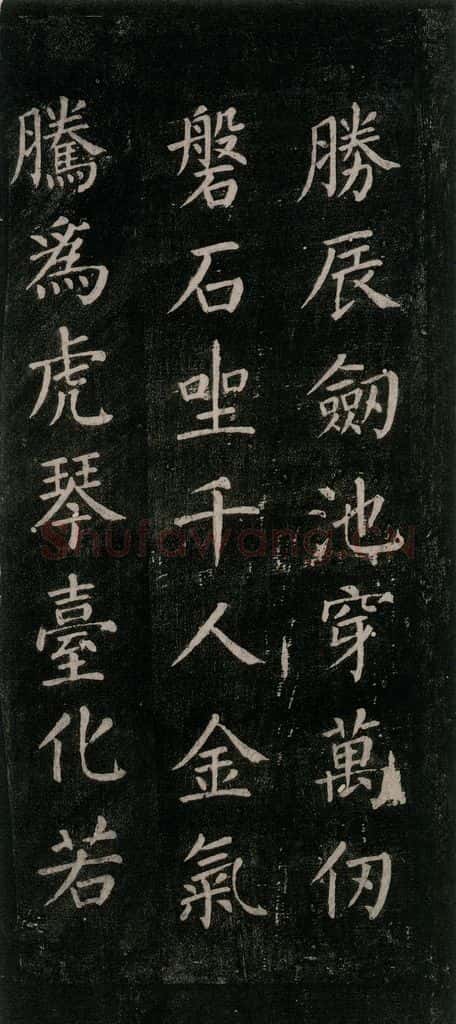 勝辰劒池穿萬仞
磐石坐千人金氣
騰爲虎琴臺化若
Shufawang.CN